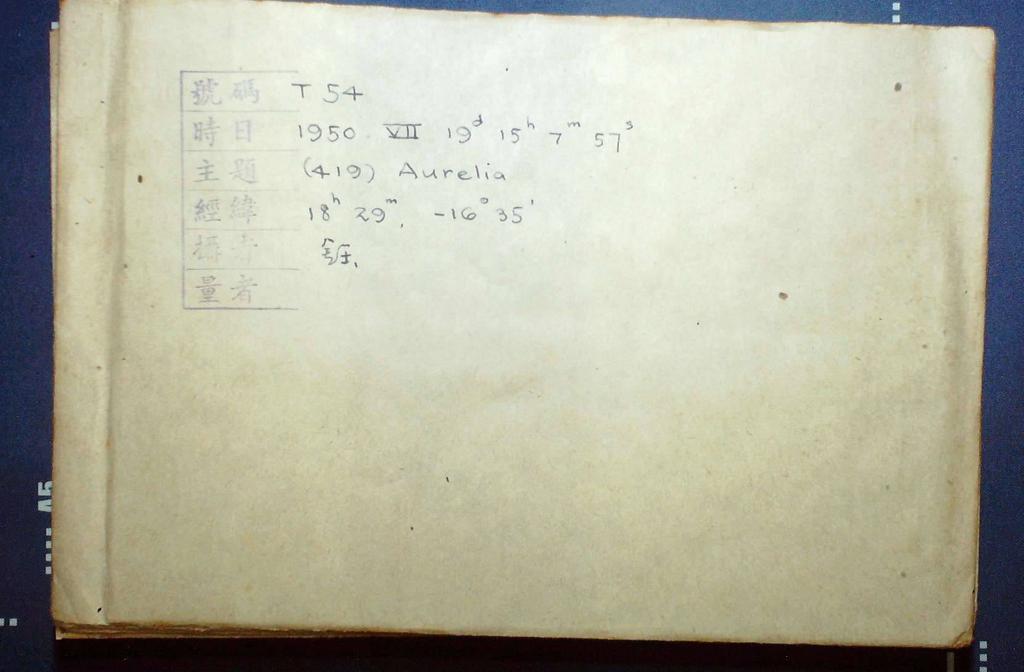 號碼 T 54
時日 1950 VII 19ᵈ 15ʰ 7ᵐ 57ˢ
主題 (419) Aurelia
經緯 18ʰ 29ᵐ, -16° 35'
攝者
量者
A5